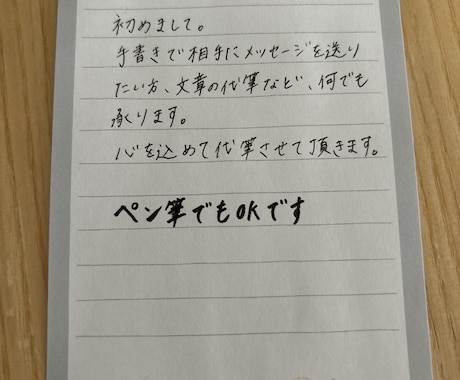 初めまして。
手書きで相手にメッセージを送り
たい方、文章の代筆など、何でも
承ります。
心を込めて代筆させて頂きます。
ペン筆でもOKです